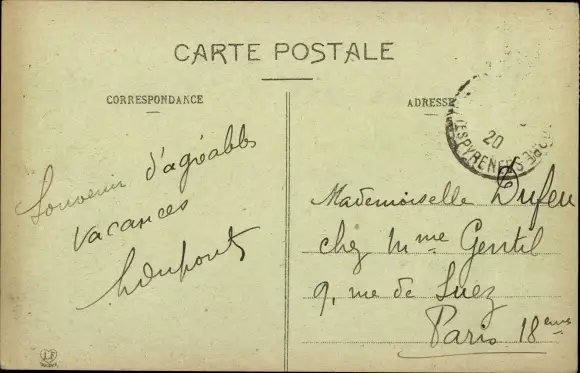 CARTE POSTALE
CORRESPONDANCE
ADRESSE
Souvenir d'agréables
vacances
LDupont
20
PYRENEES
Mademoiselle Dufeu
chez Mme Gentil
9, rue de Suez
Paris 18eme